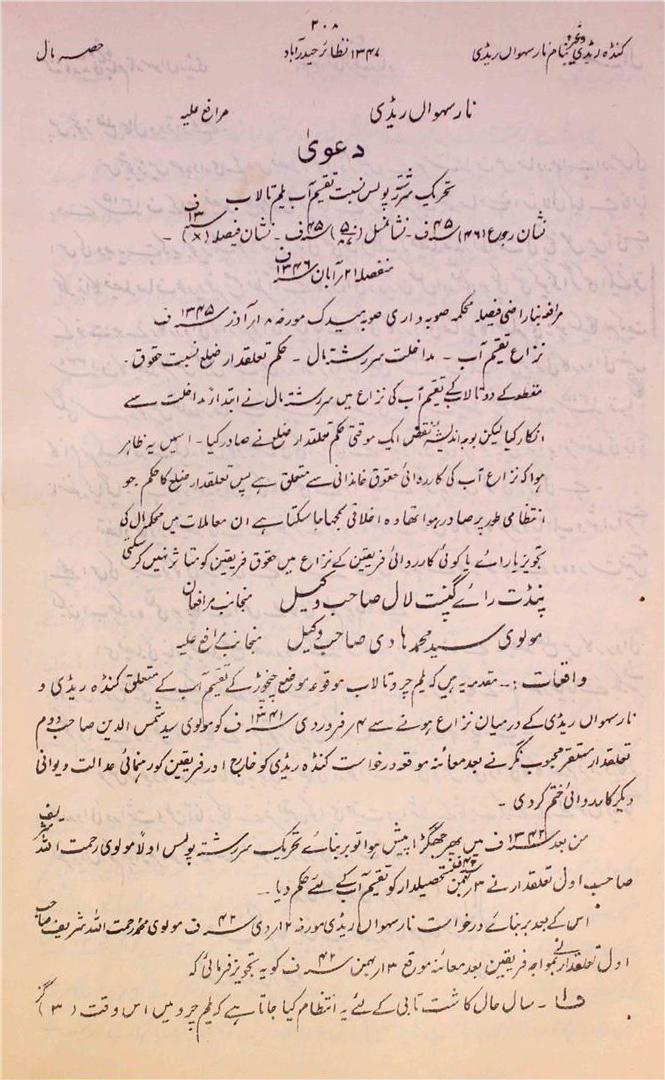 ۲۰۸
کنڈہ ریڈی وغیرہ بنام نارسہواں ریڈی ۱۳۴۷ نظائر حیدرآباد حصہ مال
نارسہواں ریڈی مرافع علیہ
دعویٰ
تحریک سررشتہ پولس نسبت تقیم آب یلم تالاب
نشان رجوع (۴۶) ۴۵ ف ۔ نشانمثل ۴۵ ف ۔ نشان فیصلہ (×) ۔
منفصلہ ۲۱ آبان ۱۳۴۶ ف
مرافعہ بناراضی فیصلہ محکمہ صوبہ داری صوبہ میدک مورخہ ۱۸ آذر ۱۳۴۵ ف
نزاع تقیم آب ۔ مداخلت سررشتہ مال ۔ حکم تعلقدار ضلع نسبت حقوق ۔
مقطعہ کے دو تالاب کے تقیم آب کی نزاع میں سررشتہ مال نے ابتداءً مداخلت سے
انکار کیا لیکن بوجہ اندیشہ نقض ایک موقتی حکم تعلقدار ضلع نے صادر کیا ۔ اسمیں یہ ظاہر
ہوا کہ نزاع آب کی کارروائی حقوق خانذانی سے متعلق ہے پس تعلقدار ضلع کا حکم جو
انتظامی طور پر صادر ہوا تھا وہ اخلاقی سمجھا جا سکتا ہے ان معاملات میں محکمہ مال کی
تجویز یا رائے یا کوئی کارروائی فریقین کے نزاع میں حقوق فریقین کو متاثر نہیں کر سکتی
پنڈت رائے گنپت لال صاحب وکیل منجانب مرافعان
مولوی سید محمد ہادی صاحب وکیل منجانب مرافع علیہ
واقعات :۔ مقدمہ یہ ہیں کہ یلم چرو تالاب موقوعہ موضع کے تقیم آب کے متعلق کنڈہ ریڈی و
نارسہواں ریڈی کے درمیان نزاع ہونے سے ۴ فروردی ۱۳۴۱ ف کو مولوی سید شمس الدین صاحب دوم
تعلقدار مستقر محبوب نگر نے بعد معائنہ موقعہ درخواست کنڈہ ریڈی کو خارج اور فریقین کو رہنمائی عدالت دیوانی
دیکر کارروائی ختم کر دی ۔
من بعد ۱۳۴۲ ف میں پھر جھگڑا پیش ہوا تو بر بنائے تحریک سررشتہ پولس اولاً مولوی رحمت اللہ شریف
صاحب اول تعلقدار نے ۳ بہمن ۴۲ ف تحصیلدار کو تقیم آب کے لئے حکم دیا ۔
اس کے بعد بر بنائے درخواست نارسہواں ریڈی مورخہ ۱۲ دی ۴۲ ف مولوی محمد رحمت اللہ شریف صاحب
اول تعلقدار نے بمواجہ فریقین بعد معائنہ موقع ۱۳ بہمن ۴۲ ف کو یہ تجویز فرمائی کہ
ف۱ ۔ سال حال کاشت تابی کے لئے یہ انتظام کیا جاتا ہے کہ یلم چرو میں اس وقت (۳) گز